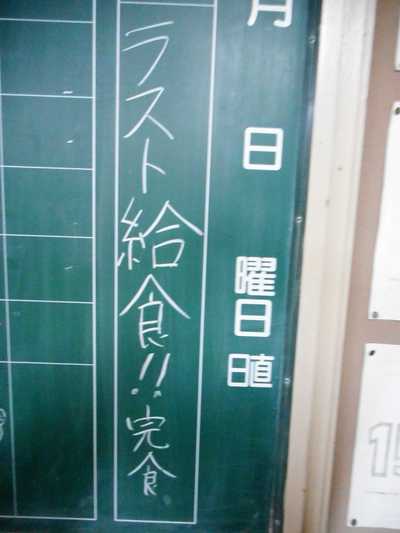 月
日
曜日
日直
ラスト給食!! 完食
15